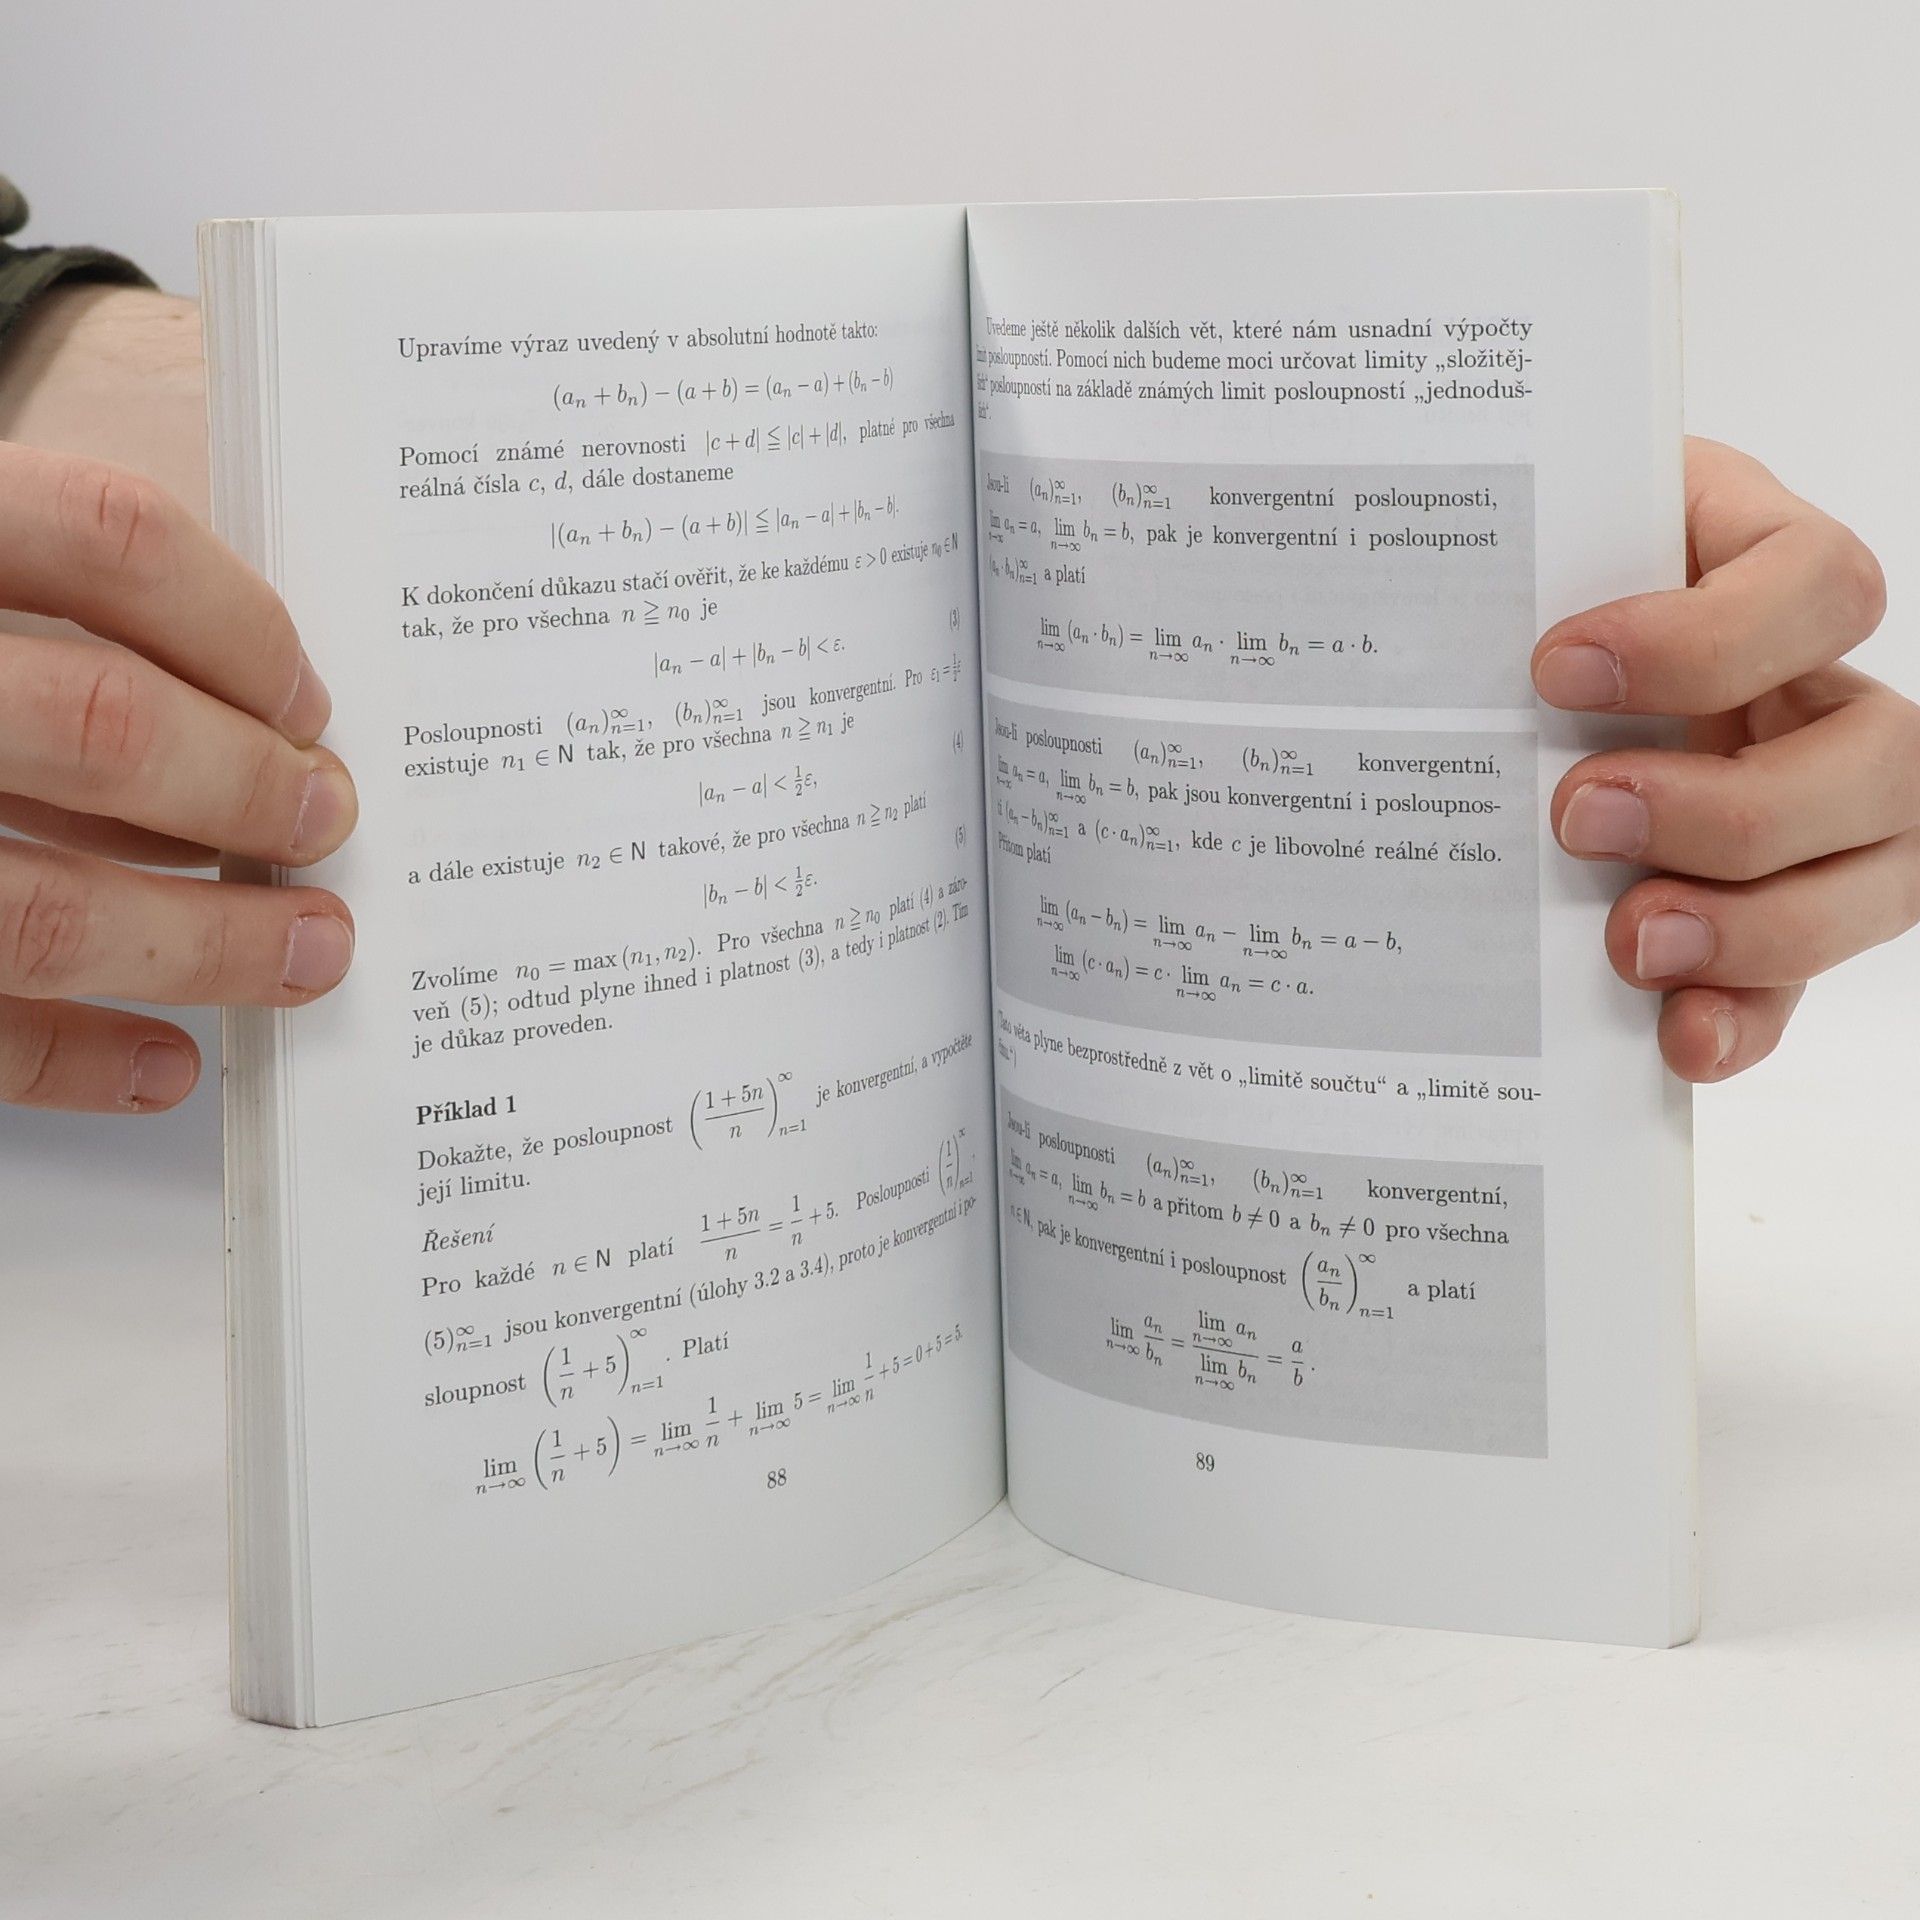 Upravíme výraz uvedený v absolutní hodnotě takto:
(aₙ + bₙ) − (a + b) = (aₙ − a) + (bₙ − b)
Pomocí známé nerovnosti |c + d| ≦ |c| + |d|, platné pro všechna
reálná čísla c, d, dále dostaneme
|(aₙ + bₙ) − (a + b)| ≦ |aₙ − a| + |bₙ − b|.
K dokončení důkazu stačí ověřit, že ke každému ε > 0 existuje n₀ ∈ N
tak, že pro všechna n ≧ n₀ je
|aₙ − a| + |bₙ − b| < ε. (3)
Posloupnosti (aₙ)ₙ₌₁^∞, (bₙ)ₙ₌₁^∞ jsou konvergentní. Pro ε₁ = ½ε
existuje n₁ ∈ N tak, že pro všechna n ≧ n₁ je
|aₙ − a| < ½ε, (4)
a dále existuje n₂ ∈ N takové, že pro všechna n ≧ n₂ platí
|bₙ − b| < ½ε. (5)
Zvolíme n₀ = max (n₁, n₂). Pro všechna n ≧ n₀ platí (4) a záro-
veň (5); odtud plyne ihned i platnost (3), a tedy i platnost (2). Tím
je důkaz proveden.
Příklad 1
Dokažte, že posloupnost ((1 + 5n)/n)ₙ₌₁^∞ je konvergentní, a vypočtěte
její limitu.
Řešení
Pro každé n ∈ N platí (1 + 5n)/n = 1/n + 5. Posloupnosti (1/n)ₙ₌₁^∞,
(5)ₙ₌₁^∞ jsou konvergentní (úlohy 3.2 a 3.4), proto je konvergentní i po-
sloupnost (1/n + 5)ₙ₌₁^∞. Platí
lim_{n→∞} (1/n + 5) = lim_{n→∞} 1/n + lim_{n→∞} 5 = lim_{n→∞} 1/n + 5 = 0 + 5 = 5.
88
Uvedeme ještě několik dalších vět, které nám usnadní výpočty
limit posloupností. Pomocí nich budeme moci určovat limity „složitěj-
ších“ posloupností na základě známých limit posloupností „jednoduš-
ších“.
Jsou-li (aₙ)ₙ₌₁^∞, (bₙ)ₙ₌₁^∞ konvergentní posloupnosti,
lim_{n→∞} aₙ = a, lim_{n→∞} bₙ = b, pak je konvergentní i posloupnost
(aₙ · bₙ)ₙ₌₁^∞ a platí
lim_{n→∞} (aₙ · bₙ) = lim_{n→∞} aₙ · lim_{n→∞} bₙ = a · b.
Jsou-li posloupnosti (aₙ)ₙ₌₁^∞, (bₙ)ₙ₌₁^∞ konvergentní,
lim_{n→∞} aₙ = a, lim_{n→∞} bₙ = b, pak jsou konvergentní i posloupnos-
ti (aₙ − bₙ)ₙ₌₁^∞ a (c · aₙ)ₙ₌₁^∞, kde c je libovolné reálné číslo.
Přitom platí
lim_{n→∞} (aₙ − bₙ) = lim_{n→∞} aₙ − lim_{n→∞} bₙ = a − b,
lim_{n→∞} (c · aₙ) = c · lim_{n→∞} aₙ = c · a.
(Tato věta plyne bezprostředně z vět o „limitě součtu“ a „limitě sou-
činu.“)
Jsou-li posloupnosti (aₙ)ₙ₌₁^∞, (bₙ)ₙ₌₁^∞ konvergentní,
lim_{n→∞} aₙ = a, lim_{n→∞} bₙ = b a přitom b ≠ 0 a bₙ ≠ 0 pro všechna
n ∈ N, pak je konvergentní i posloupnost (aₙ/bₙ)ₙ₌₁^∞ a platí
lim_{n→∞} aₙ/bₙ = (lim_{n→∞} aₙ)/(lim_{n→∞} bₙ) = a/b.
89